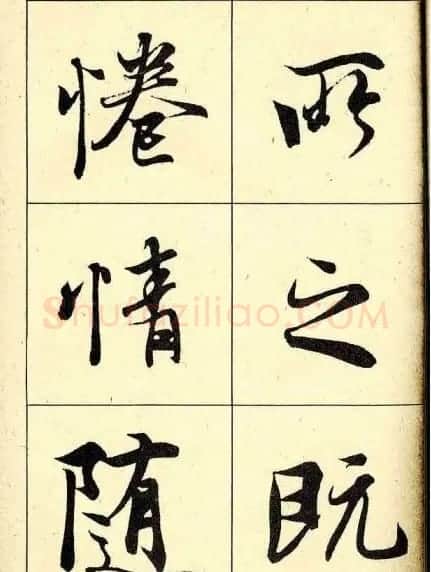 所之既
惓情随
Shufaziliao.COM